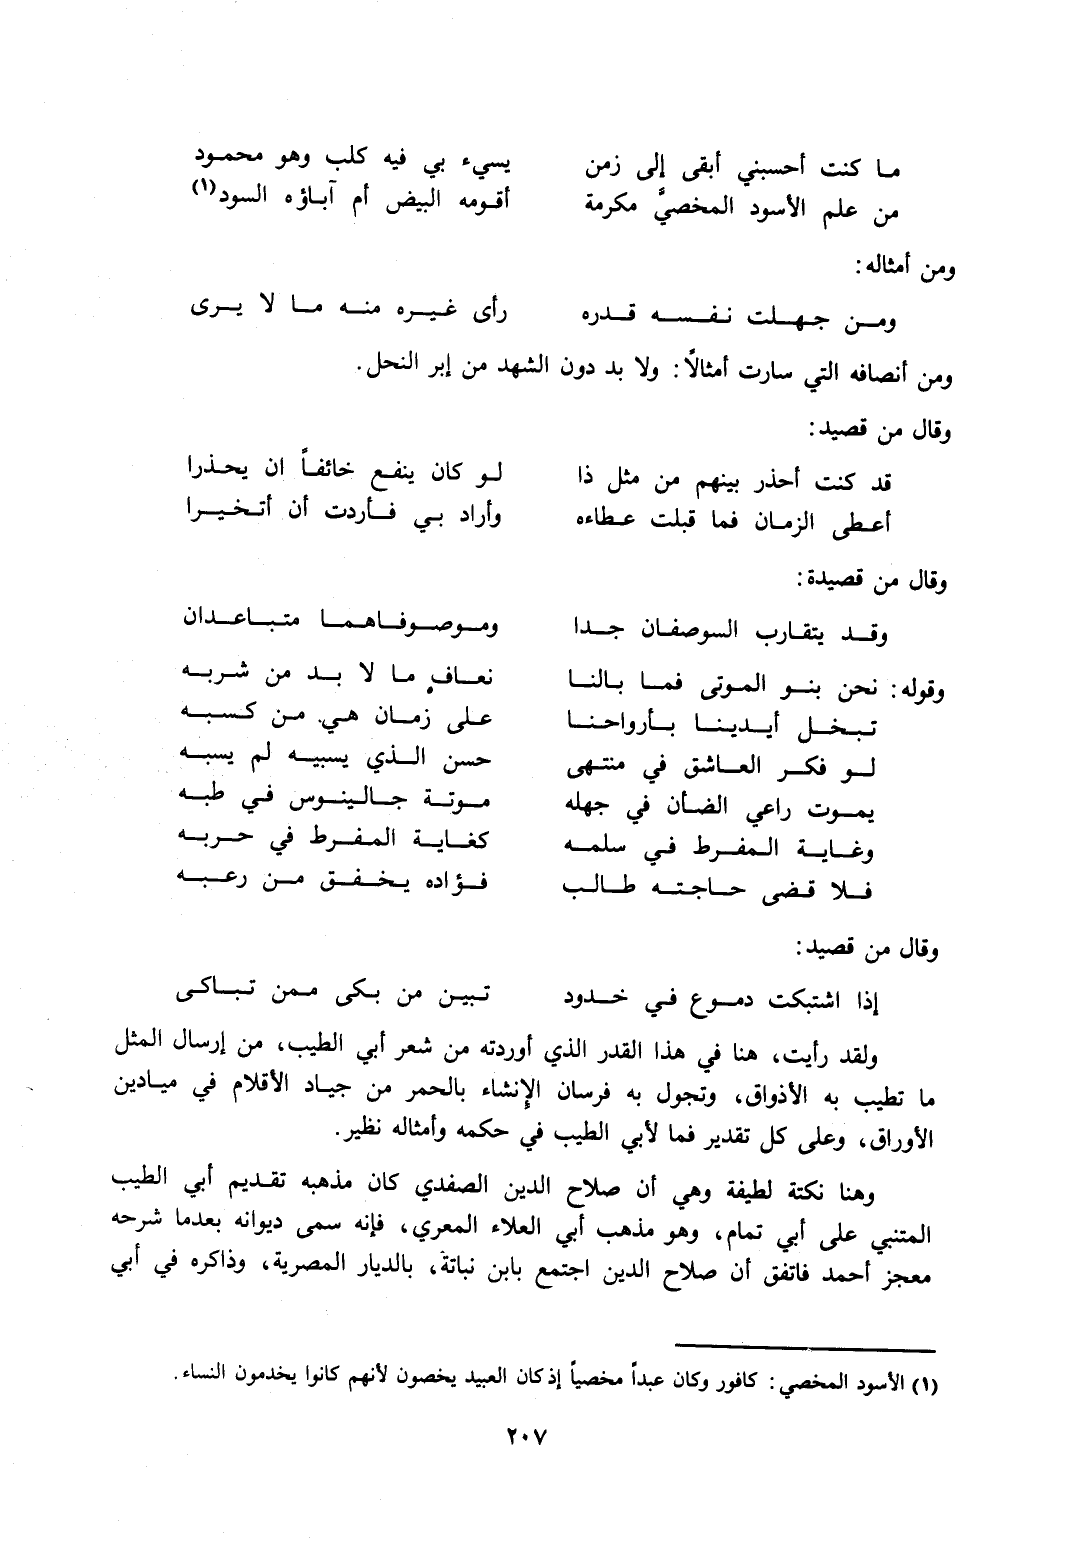 ما كنت أحسبني أبقى إلى زمن يسيء بي فيه كلب وهو محمود
من علم الأسود المخصيَّ مكرمة أقومه البيض أم آباؤه السود(١)
ومن أمثاله:
ومن جهلت نفسه قدره رأى غيره منه ما لا يرى
ومن أنصافه التي سارت أمثالًا: ولا بد دون الشهد من إبر النحل.
وقال من قصيد:
قد كنت أحذر بينهم من مثل ذا لو كان ينفع خائفاً ان يحذرا
أعطى الزمان فما قبلت عطاءه وأراد بي فأردت أن أتخيرا
وقال من قصيدة:
وقد يتقارب الوصفان جدا وموصوفاهما متباعدان
وقوله: نحن بنو الموتى فما بالنا نعاف ما لا بد من شربه
تبخل أيدينا بأرواحنا على زمان هي من كسبه
لو فكر العاشق في منتهى حسن الذي يسبيه لم يسبه
يموت راعي الضأن في جهله موتة جالينوس في طبه
وغاية المفرط في سلمه كغاية المفرط في حربه
فلا قضى حاجته طالب فؤاده يخفق من رعبه
وقال من قصيد:
إذا اشتبكت دموع في خدود تبين من بكى ممن تباكى
ولقد رأيت، هنا في هذا القدر الذي أوردته من شعر أبي الطيب، من إرسال المثل
ما تطيب به الأذواق، وتجول به فرسان الإنشاء بالحمر من جياد الأقلام في ميادين
الأوراق، وعلى كل تقدير فما لأبي الطيب في حكمه وأمثاله نظير.
وهنا نكتة لطيفة وهي أن صلاح الدين الصفدي كان مذهبه تقديم أبي الطيب
المتنبي على أبي تمام، وهو مذهب أبي العلاء المعري، فإنه سمى ديوانه بعدما شرحه
معجز أحمد فاتفق أن صلاح الدين اجتمع بابن نباتة، بالديار المصرية، وذاكره في أبي
(١) الأسود المخصي: كافور وكان عبداً مخصياً إذ كان العبيد يخصون لأنهم كانوا يخدمون النساء.
٢٠٧